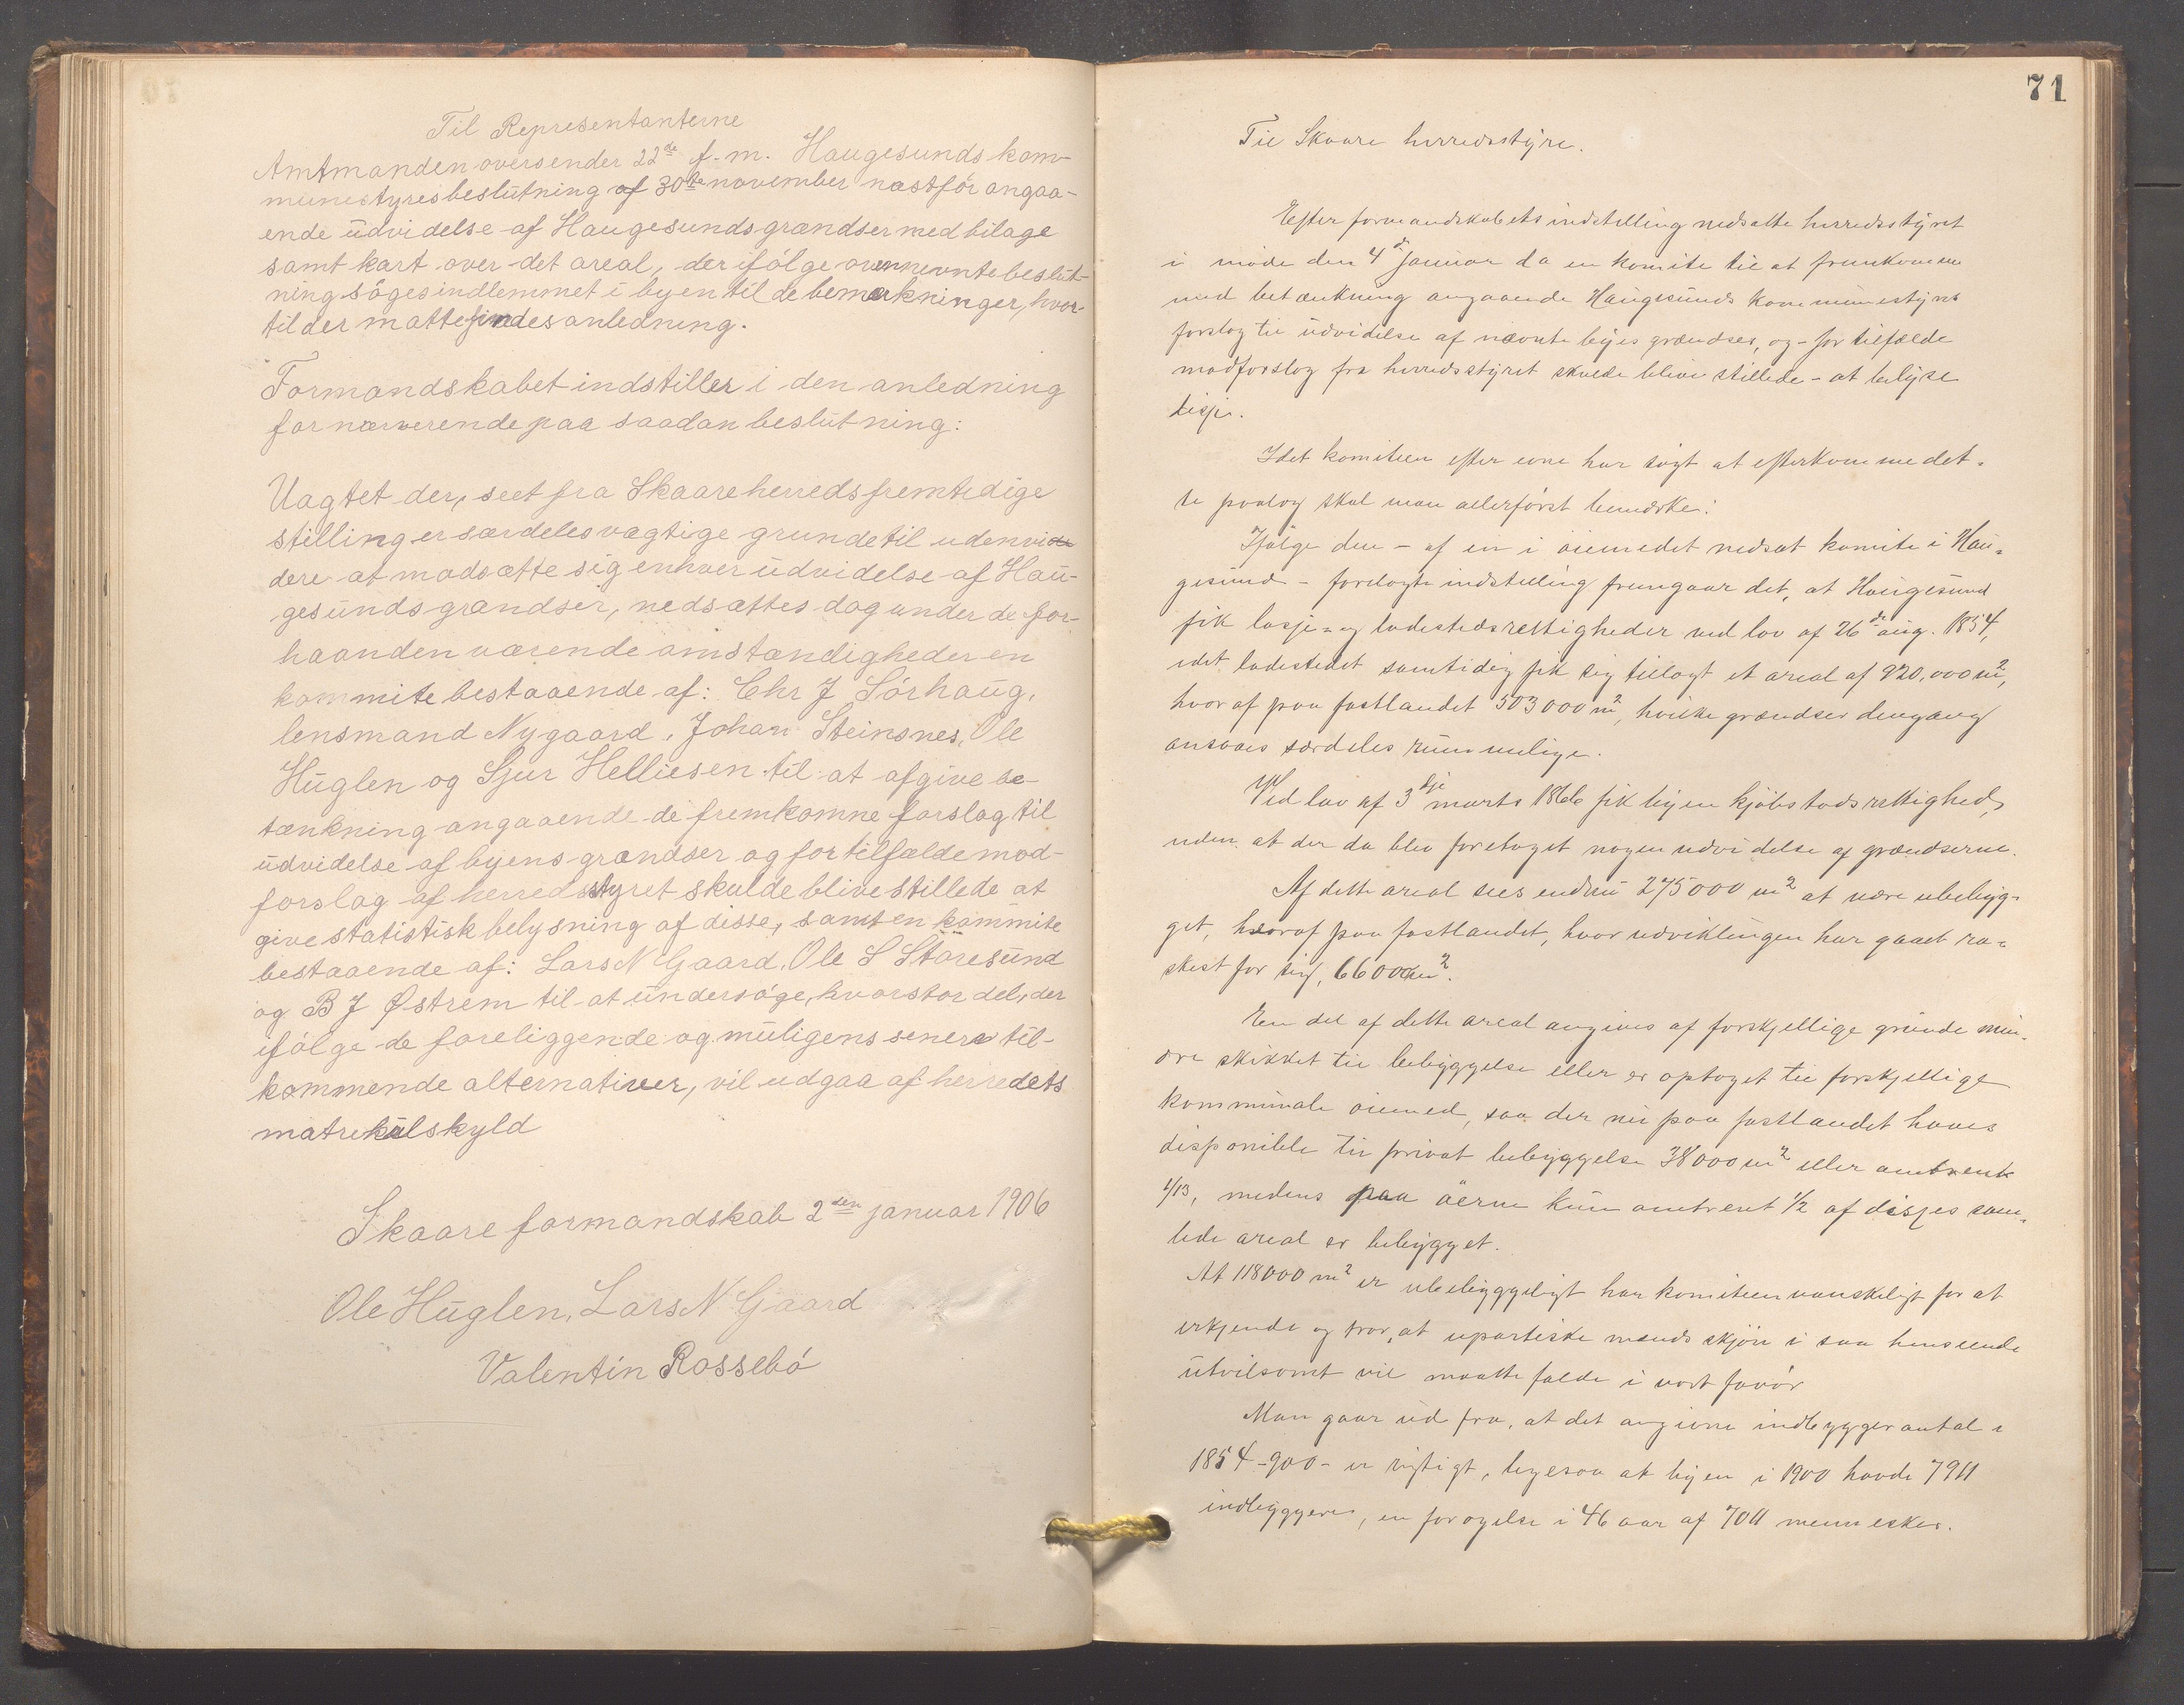 Til Representanterne
Amtmanden oversender 22de f.m. Haugesunds kom-
munestyres beslutning af 30te november næstfór angaa-
ende udvidelse af Haugesunds grændser med bilage
samt kart over det areal, der ifólge ovennevnte beslut-
ning sóges indlemmet i byen til de bemærkninger, hvor-
til der måtte findes anledning.
Formandskabet indstiller i den anledning
for nærverende paa saadan beslutning:
Uagtet der, seet fra Skaare herreds fremtidige
stilling er særdeles vægtige grunde til uden vi
dere at modsætte sig enhver udvidelse af Hau-
gesunds grændser, nedsættes dog under de for-
haanden værende omstændigheder en
kommite bestaaende af: Chr J Sórhaug,
lensmand Nygaard, Johan Steinsnes, Ole
Huglen og Sjur Helliesen til at afgive be-
tænkning angaaende de fremkomne forslag til
udvidelse af byens grændser og for tilfælde mod-
forslag af herredsstyret skulde blive stillede at
give statistisk belysning af disse, samt en kommite
bestaaende af: Lars N Gaard, Ole S Storesund
og B J Østrem til at undersóge, hvor stor del, der
ifólge de foreliggende og muligens senere til-
kommende alternativer, vil udgaa af herredets
matrikulskyld
Skaare formandskab 2den januar 1906
Ole Huglen, Lars N Gaard
Valentin Rossebó
71
Til Skaare herredsstyre.
Efter formandskabets indstilling nedsatte herredsstyret
i móde den 4de januar da en komite til at fremkomme
med betænkning angaaende Haugesunds kommunestyres
forslag til udvidelse af nævnte byes grændser, og - for tilfælde
modforslag fra herredsstyret skulde blive stillede - at belyse
disje.
Idet komiteen efter evne har sógt at efterkomme det-
te paalæg skal man allerfórst bemærke:
Ifólge den - af en i óiemedet nedsat komite i Hau-
gesund - forelagte indstilling fremgaar det, at Haugesund
fik losje- og ladestedsrettigheder ved lov af 26de aug. 1854,
idet ladestedet samtidig fik sig tillagt et areal af 920,000 m2,
hvoraf paa fastlandet 503000 m2, hvilke grændser dengang
ansaaes særdeles rummelige.
Ved lov af 3dje marts 1866 fik byen kjóbstadsrettighed,
uden at der da blev foretaget nogen udvidelse af grændserne.
Af dette areal sees endnu 275000 m2 at være ubebyg-
get, hvoraf paa fastlandet, hvor udviklingen har gaaet ra-
skest for sig, 66000 m2.
En del af dette areal angives af forskjellige grunde min-
dre skikket til bebyggelse eller er optaget til forskjellige
kommunale óiemed, saa der nu paa fastlandet haves
disponible til privat bebyggelse 38000 m2 eller omtrent
1/13, medens paa óerne kun omtrent 1/2 af disjes sam-
lede areal er bebygget.
At 118000 m2 er ubebyggeligt har komiteen vanskeligt for at
erkjende og tror, at upartiske mænds skjón i saa henseende
utvilsomt vil maatte falde i vort favór
Man gaar ud fra, at det angivne indbyggerantal i
1854 - 900 - er rigtigt, ligesaa at byen i 1900 havde 7911
indbyggere, en forógelse i 46 aar af 7011 mennesker.